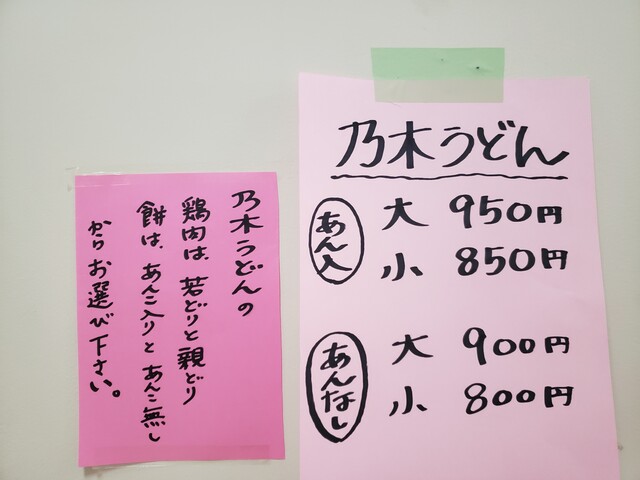 乃木うどん
あん入
大 950円
小 850円
あんなし
大 900円
小 800円
乃木うどんの
鶏肉は、若どりと親どり
餅は、あんこ入りとあんこ無し
からお選び下さい。